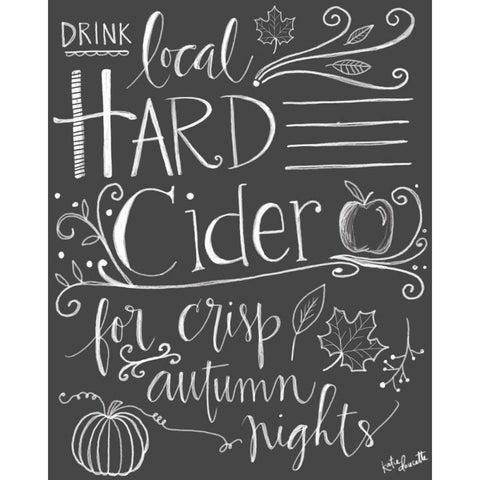 DRINK local
HARD
Cider
for crisp
autumn
nights
katie doucette